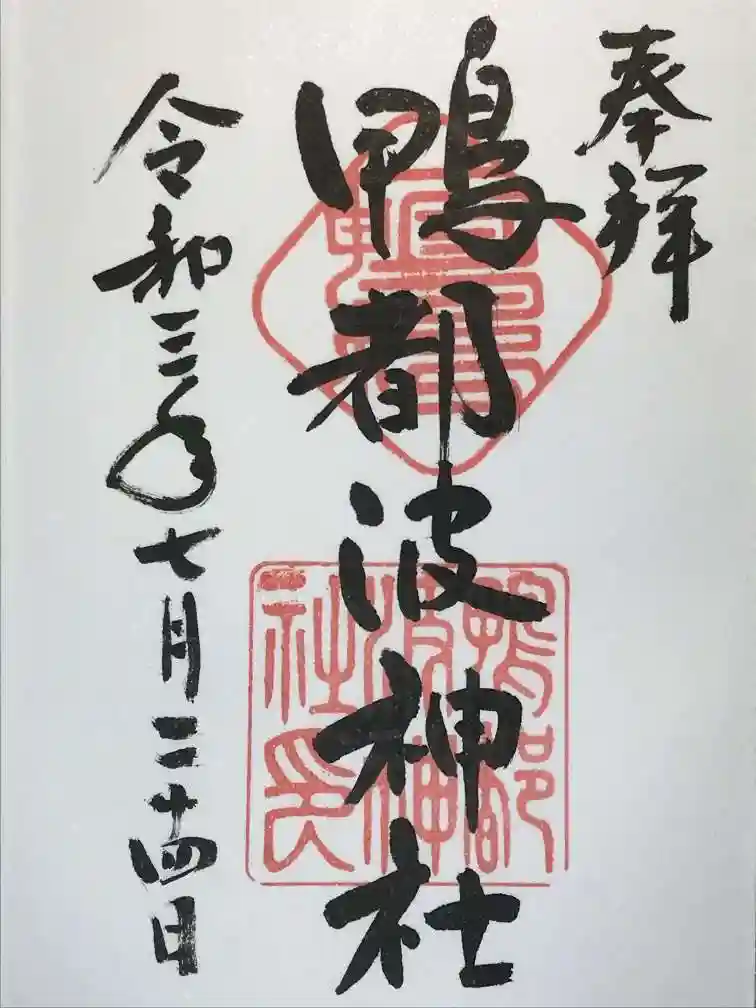 奉拝
鴨都波神社
令和三年七月二十四日
鴨都
波神
社印